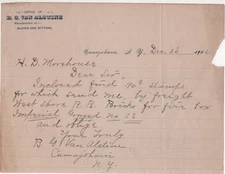 OFFICE OF
B. G. VAN ALSTINE
Manufacturer of
SLEIGHS AND CUTTERS,
Canajoharie, N.Y. Dec 26 1906
H. D. Morehouse
Dear Sir,
Inclosed find 90¢ stamps
for which send me by freight
West Shore R. R. Bricks for fire box
Imperial Grand No 22
and oblige
Yours Truly
B G Van Alstine
Canajoharie
N.Y.